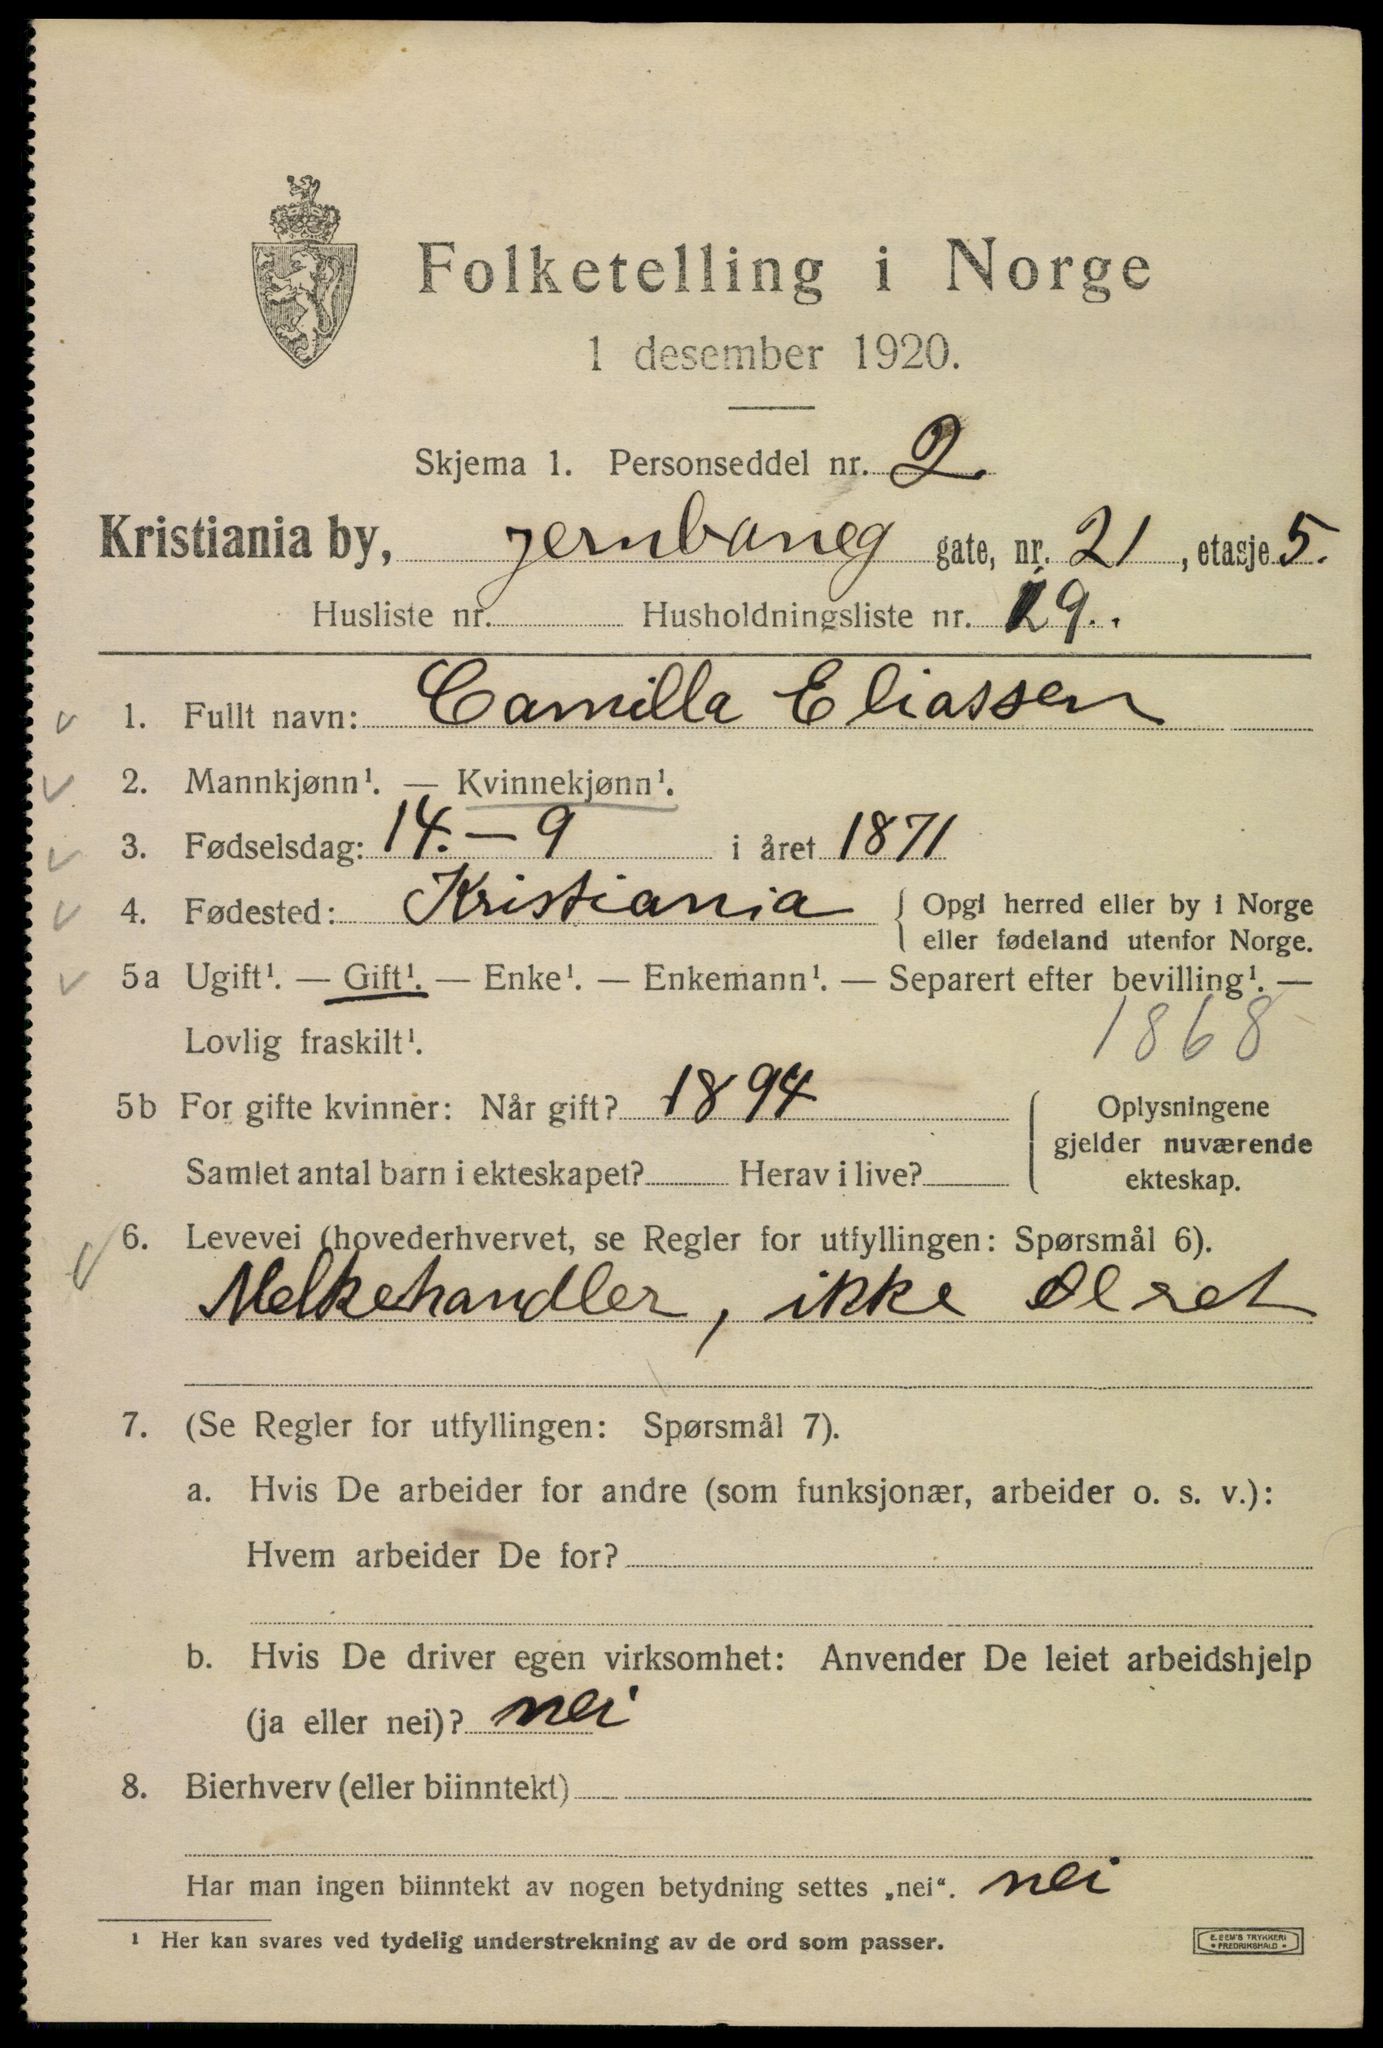 Folketelling i Norge
1 desember 1920.
Skjema 1. Personseddel nr. 2
Kristiania by, Jernbaneg gate, nr. 21, etasje 5.
Husliste nr. Husholdningsliste nr. 29.
1. Fullt navn: Camilla Eliassen
2. Mannkjønn¹. — Kvinnekjønn¹.
3. Fødselsdag: 14. – 9 i året 1871
4. Fødested: Kristiania { Opgi herred eller by i Norge
eller fødeland utenfor Norge.
5a Ugift¹. — Gift¹. — Enke¹. — Enkemann¹. — Separert efter bevilling¹. —
Lovlig fraskilt¹. 1868
5b For gifte kvinner: Når gift? 1894
Samlet antal barn i ekteskapet? Herav i live?
Oplysningene
gjelder nuværende
ekteskap.
6. Levevei (hovederhvervet, se Regler for utfyllingen: Spørsmål 6).
Melkehandler, ikke Ølret
7. (Se Regler for utfyllingen: Spørsmål 7).
a. Hvis De arbeider for andre (som funksjonær, arbeider o. s. v.):
Hvem arbeider De for?
b. Hvis De driver egen virksomhet: Anvender De leiet arbeidshjelp
(ja eller nei)? nei
8. Bierhverv (eller biinntekt)
Har man ingen biinntekt av nogen betydning settes „nei“. nei
¹ Her kan svares ved tydelig understrekning av de ord som passer.
E. SEM'S TRYKKERI
• FREDRIKSHALD •